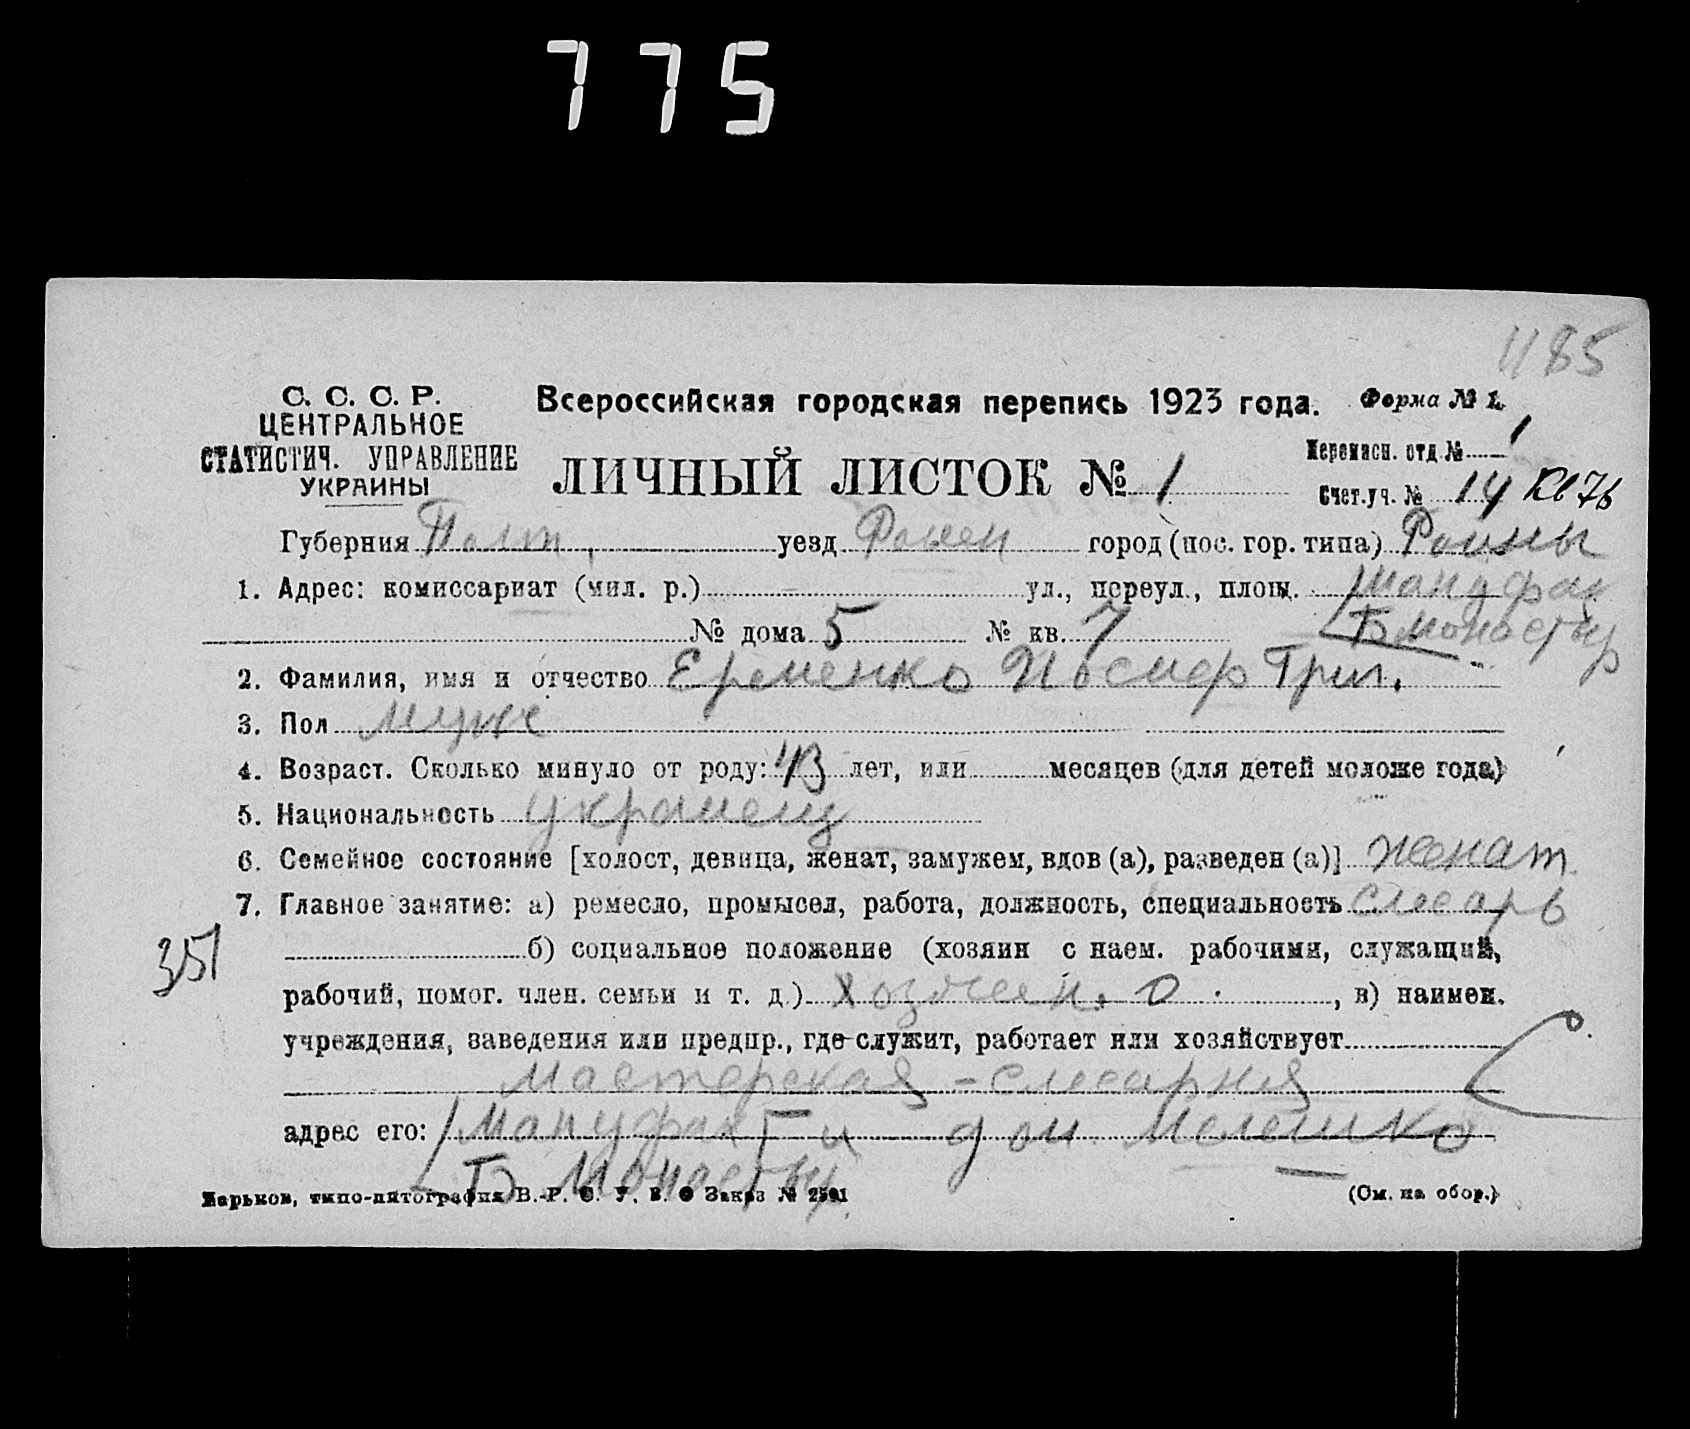 775
1185
С. С. С. Р.
ЦЕНТРАЛЬНОЕ
СТАТИСТИЧ. УПРАВЛЕНИЕ
УКРАИНЫ
Всероссийская городская перепись 1923 года. Форма № 1.
ЛИЧНЫЙ ЛИСТОК № 1
Переписн. отд. № 1
Счет. уч. № 14
Губерния Полт. уезд Ромен город (пос. гор. типа) Ромны
1. Адрес: комиссариат (мил. р.) ул., переул., площ. Мануфак
Б монастыр
№ дома 5 № кв. 7
2. Фамилия, имя и отчество Еременко Иосиф Григ.
3. Пол муж
4. Возраст. Сколько минуло от роду: 43 лет, или месяцев (для детей моложе года)
5. Национальность украинец
6. Семейное состояние [холост, девица, женат, замужем, вдов (а), разведен (а)] женат
7. Главное занятие: а) ремесло, промысел, работа, должность, специальность слесарь
351
б) социальное положение (хозяин с наем. рабочими, служащий,
рабочий, помог. член. семьи и т. д.) , в) наимен.
учреждения, заведения или предпр., где служит, работает или хозяйствует
мастерская - слесарня
адрес его: Мануфак дом Мелешко
Б Монастыр.
Харьков, типо-литография В. Р. С. У. В. О Заказ № 2501
(См. на обор.)